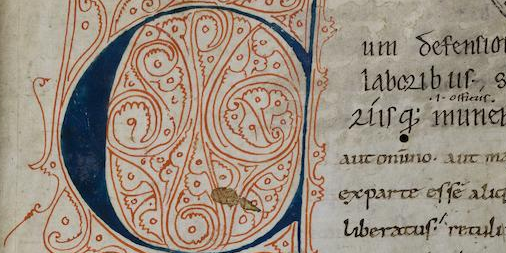 Cum defensio
laboribus. s
·i· officiis.
riisq; muner
aut omnino. aut ma
exparte essē aliq
liberatus. retuli